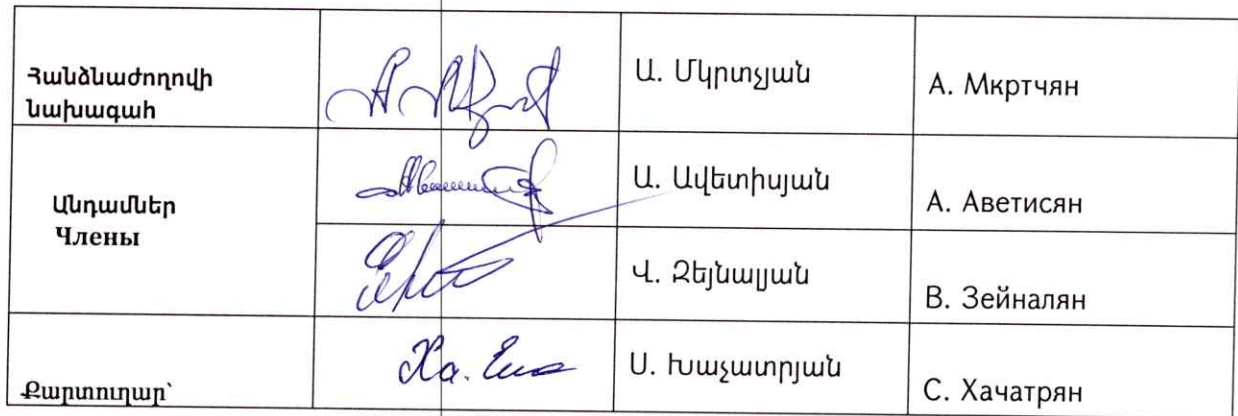 Հանձնաժողովի
նախագահ
Ա. Մկրտչյան
А. Мкртчян
Անդամներ
Члены
Ա. Ավետիսյան
А. Аветисян
Վ. Զեյնալյան
В. Зейналян
Քարտուղար՝
Ս. Խաչատրյան
С. Хачатрян